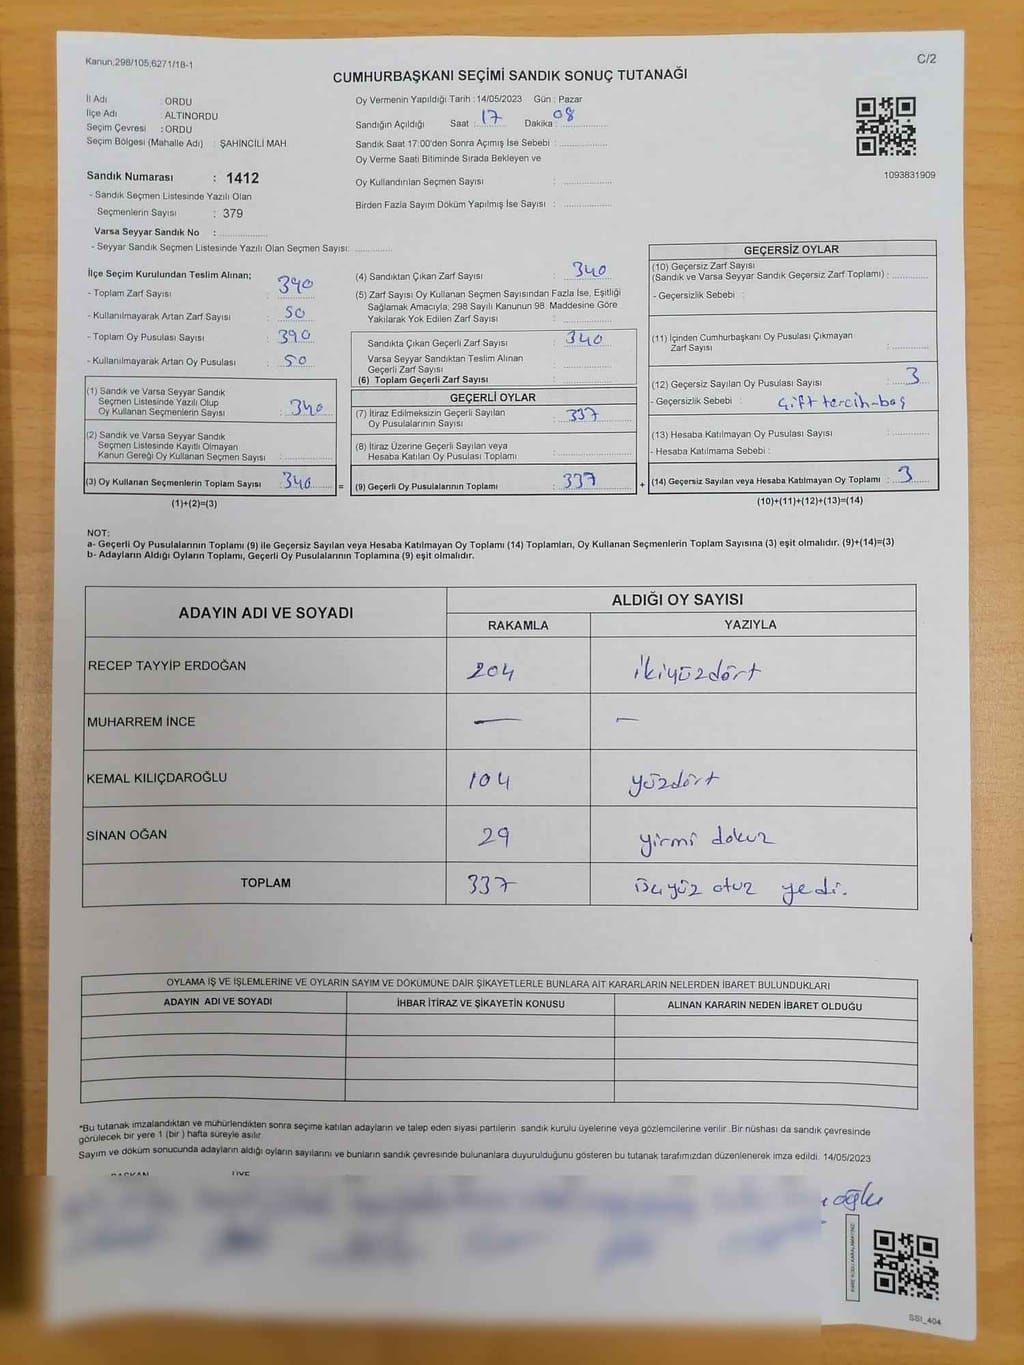 Kanun,298/105,6271/18-1
C/2
CUMHURBAŞKANI SEÇİMİ SANDIK SONUÇ TUTANAĞI
İl Adı : ORDU
İlçe Adı : ALTINORDU
Seçim Çevresi : ORDU
Seçim Bölgesi (Mahalle Adı) : ŞAHİNCİLİ MAH.
Oy Vermenin Yapıldığı Tarih : 14/05/2023 Gün : Pazar
Sandığın Açıldığı Saat : 17 Dakika : 08
Sandık Saat 17:00'den Sonra Açımış İse Sebebi :
Oy Verme Saati Bitiminde Sırada Bekleyen ve
Oy Kullandırılan Seçmen Sayısı :
Birden Fazla Sayım Döküm Yapılmış İse Sayısı :
1093831909
Sandık Numarası : 1412
- Sandık Seçmen Listesinde Yazılı Olan
Seçmenlerin Sayısı : 379
Varsa Seyyar Sandık No :
- Seyyar Sandık Seçmen Listesinde Yazılı Olan Seçmen Sayısı:
İlçe Seçim Kurulundan Teslim Alınan;
- Toplam Zarf Sayısı : 390
- Kullanılmayarak Artan Zarf Sayısı : 50
- Toplam Oy Pusulası Sayısı : 390
- Kullanılmayarak Artan Oy Pusulası : 50
(1) Sandık ve Varsa Seyyar Sandık
Seçmen Listesinde Yazılı Olup
Oy Kullanan Seçmenlerin Sayısı : 340
(2) Sandık ve Varsa Seyyar Sandık
Seçmen Listesinde Kayıtlı Olmayan
Kanun Gereği Oy Kullanan Seçmen Sayısı :
(3) Oy Kullanan Seçmenlerin Toplam Sayısı : 340
(1)+(2)=(3)
(4) Sandıktan Çıkan Zarf Sayısı : 340
(5) Zarf Sayısı Oy Kullanan Seçmen Sayısından Fazla İse, Eşitliği
Sağlamak Amacıyla; 298 Sayılı Kanunun 98. Maddesine Göre
Yakılarak Yok Edilen Zarf Sayısı :
Sandıkta Çıkan Geçerli Zarf Sayısı : 340
Varsa Seyyar Sandıktan Teslim Alınan
Geçerli Zarf Sayısı :
(6) Toplam Geçerli Zarf Sayısı :
GEÇERLİ OYLAR
(7) İtiraz Edilmeksizin Geçerli Sayılan
Oy Pusulalarının Sayısı : 337
(8) İtiraz Üzerine Geçerli Sayılan veya
Hesaba Katılan Oy Pusulası Toplamı :
= (9) Geçerli Oy Pusulalarının Toplamı : 337
GEÇERSİZ OYLAR
(10) Geçersiz Zarf Sayısı
(Sandık ve Varsa Seyyar Sandık Geçersiz Zarf Toplamı) :
- Geçersizlik Sebebi :
(11) İçinden Cumhurbaşkanı Oy Pusulası Çıkmayan
Zarf Sayısı :
(12) Geçersiz Sayılan Oy Pusulası Sayısı : 3
- Geçersizlik Sebebi : Çift tercih-boş
(13) Hesaba Katılmayan Oy Pusulası Sayısı :
- Hesaba Katılmama Sebebi :
+ (14) Geçersiz Sayılan veya Hesaba Katılmayan Oy Toplamı : 3
(10)+(11)+(12)+(13)=(14)
NOT:
a- Geçerli Oy Pusulalarının Toplamı (9) ile Geçersiz Sayılan veya Hesaba Katılmayan Oy Toplamı (14) Toplamları, Oy Kullanan Seçmenlerin Toplam Sayısına (3) eşit olmalıdır. (9)+(14)=(3)
b- Adayların Aldığı Oyların Toplamı, Geçerli Oy Pusulalarının Toplamına (9) eşit olmalıdır.
ADAYIN ADI VE SOYADI
ALDIĞI OY SAYISI
RAKAMLA YAZIYLA
RECEP TAYYİP ERDOĞAN 204 ikiyüzdört
MUHARREM İNCE — —
KEMAL KILIÇDAROĞLU 104 yüzdört
SİNAN OĞAN 29 yirmi dokuz
TOPLAM 337 üçyüz otuz yedi.
OYLAMA İŞ VE İŞLEMLERİNE VE OYLARIN SAYIM VE DÖKÜMÜNE DAİR ŞİKAYETLERLE BUNLARA AİT KARARLARIN NELERDEN İBARET BULUNDUKLARI
ADAYIN ADI VE SOYADI İHBAR İTİRAZ VE ŞİKAYETİN KONUSU ALINAN KARARIN NEDEN İBARET OLDUĞU
*Bu tutanak imzalandıktan ve mühürlendikten sonra seçime katılan adayların ve talep eden siyasi partilerin sandık kurulu üyelerine veya gözlemcilerine verilir .Bir nüshası da sandık çevresinde
görülecek bir yere 1 (bir ) hafta süreyle asılır.
Sayım ve döküm sonucunda adayların aldığı oyların sayılarını ve bunların sandık çevresinde bulunanlara duyurulduğunu gösteren bu tutanak tarafımızdan düzenlenerek imza edildi. 14/05/2023
BAŞKAN ÜYE
oğlu
SSI_404